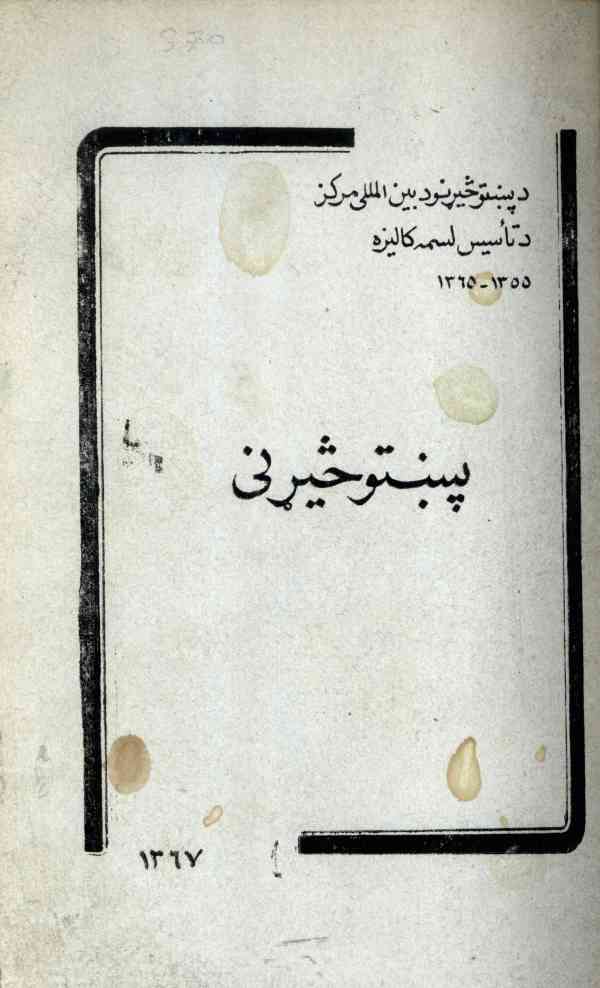 د پښتو څیړنو د بین المللی مرکز
د تأسیس لسمه کالیزه
۱۳۵۵-۱۳۶۵
پښتو څیړنی
۱۳۶۷